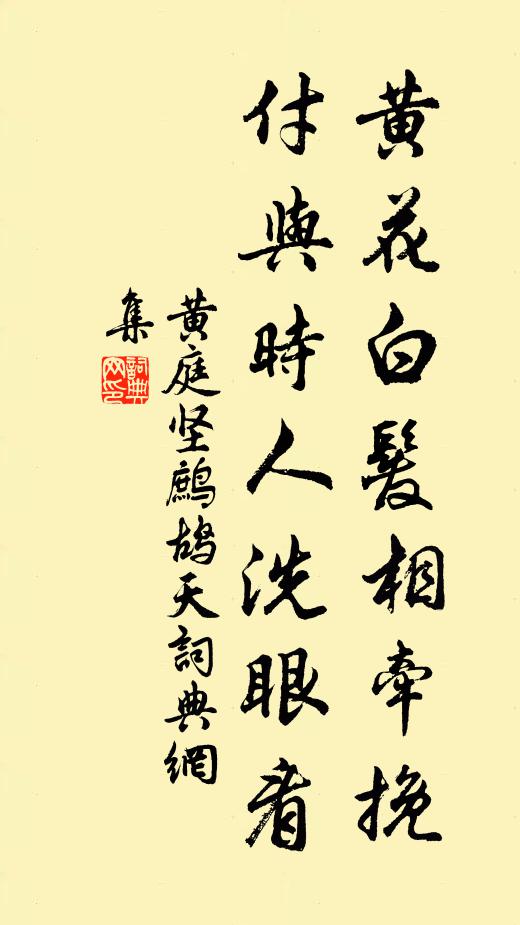 黄花白髮相牽挽
付與時人洗眼看
黄庭坚鷓鴣天詞典網
集
詞典網印